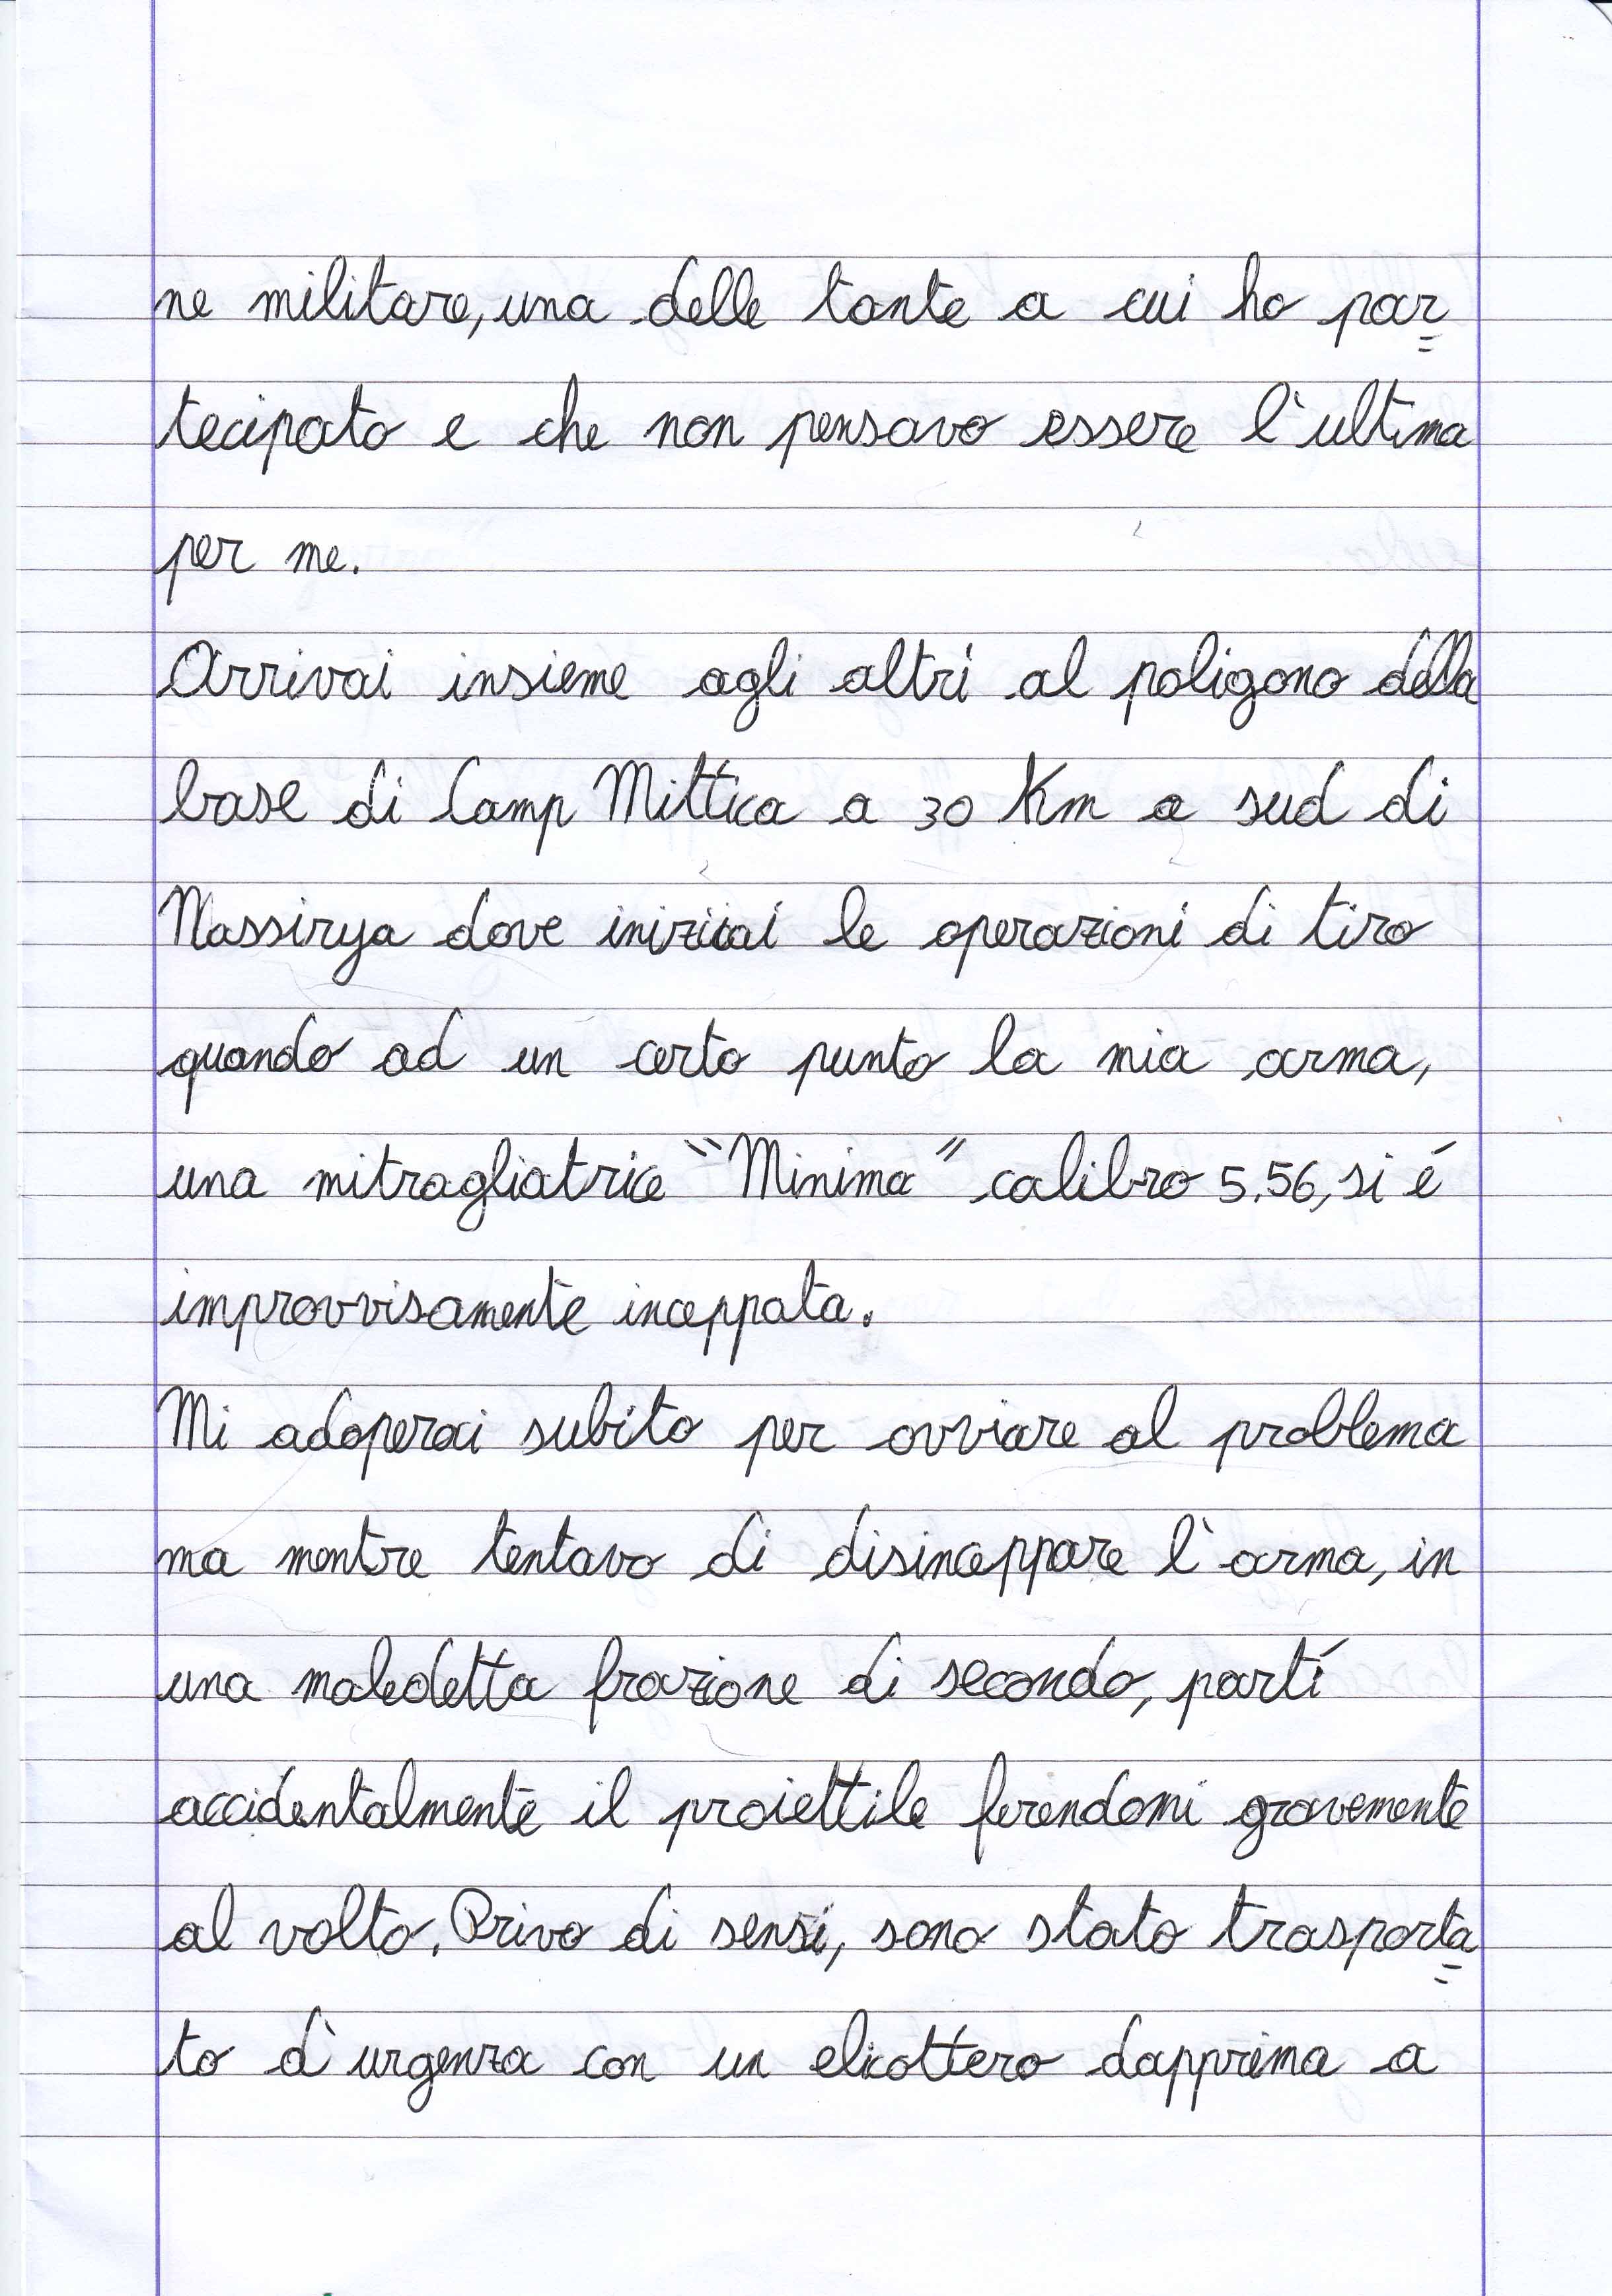 ne militare, una delle tante a cui ho par=
tecipato e che non pensavo essere l'ultima
per me.
Arrivai insieme agli altri al poligono della
base di Camp Mittica a 30 Km a sud di
Nassirya dove iniziai le operazioni di tiro
quando ad un certo punto la mia arma,
una mitragliatrice "Minima" calibro 5.56, si é
improvvisamente inceppata.
Mi adoperai subito per ovviare al problema
ma mentre tentavo di disinceppare l'arma, in
una maledetta frazione di secondo, partí
accidentalmente il proiettile ferendomi gravemente
al volto. Privo di sensi, sono stato trasporta=
to d'urgenza con un elicottero dapprima a